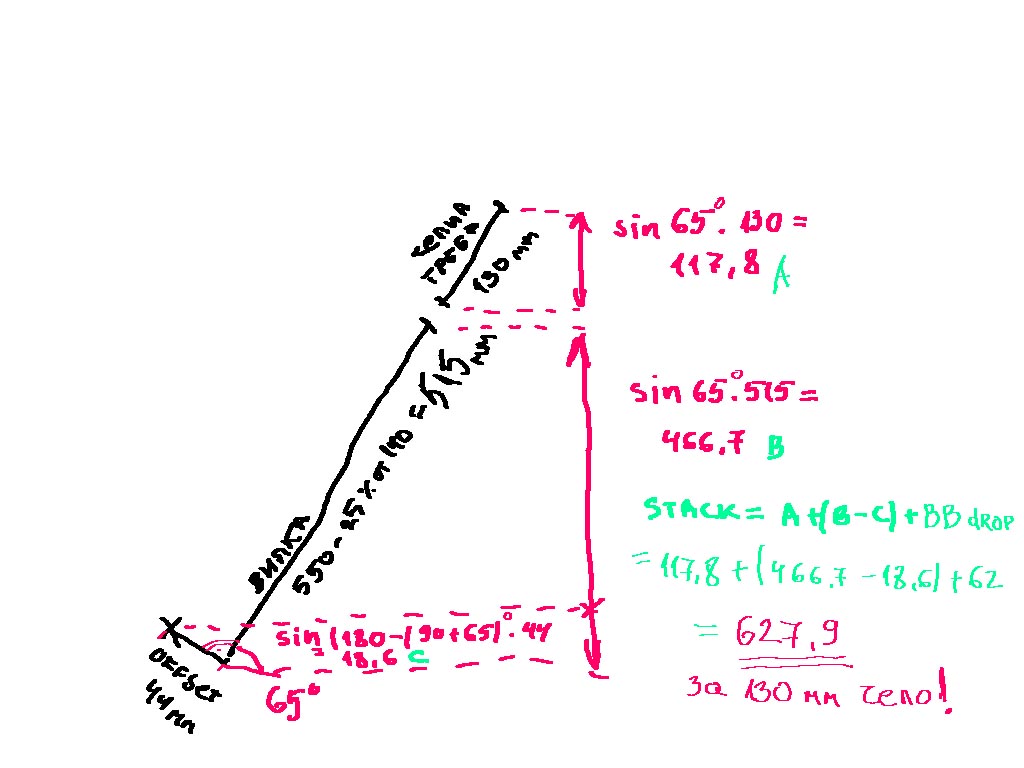 ЧЕЛНА
ТРЪБА
130 мм
sin 65°. 130 =
117,8 A
ВИЛКА
550 - 25% от 140 = 515 мм
sin 65°. 515 =
466,7 B
STACK = A+(B-C)+BB DROP
= 117,8 + (466,7 - 18,6) + 62
= 627,9
за 130 мм чело!
sin (180-(90+65)°. 44
= 18,6 C
OFFSET
44 мм
65°